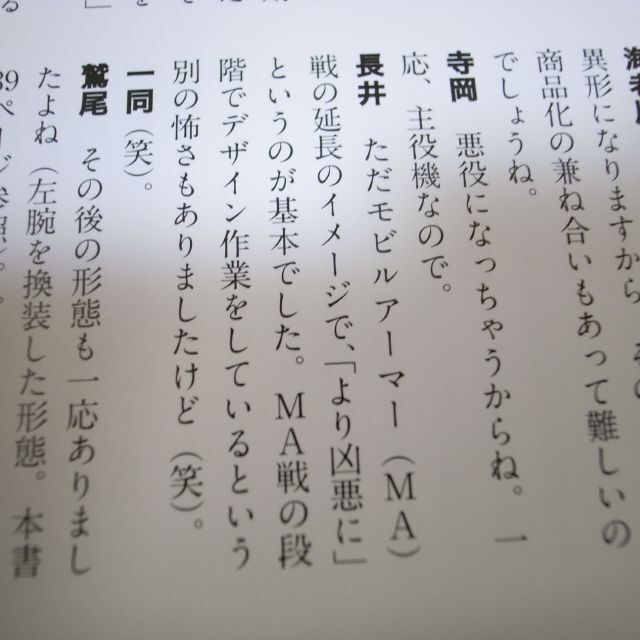 異形になりますから、その
商品化の兼ね合いもあって難しいの
でしょうね。
寺岡　悪役になっちゃうからね。一
応、主役機なので。
長井　ただモビルアーマー（MA）
戦の延長のイメージで、「より凶悪に」
というのが基本でした。MA戦の段
階でデザイン作業をしているという
別の怖さもありましたけど（笑）。
一同（笑）。
鷲尾　その後の形態も一応ありまし
たよね（左腕を換装した形態。本書
89ページ参照）。